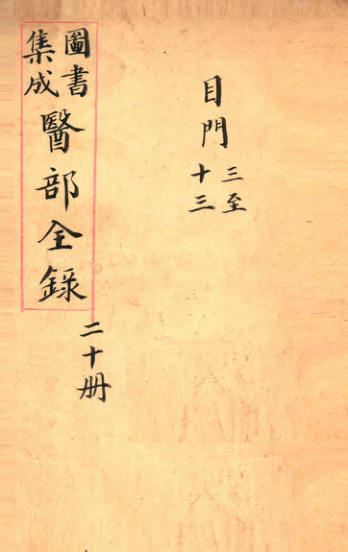 目門 三至十三
圖書集成醫部全錄
二十册